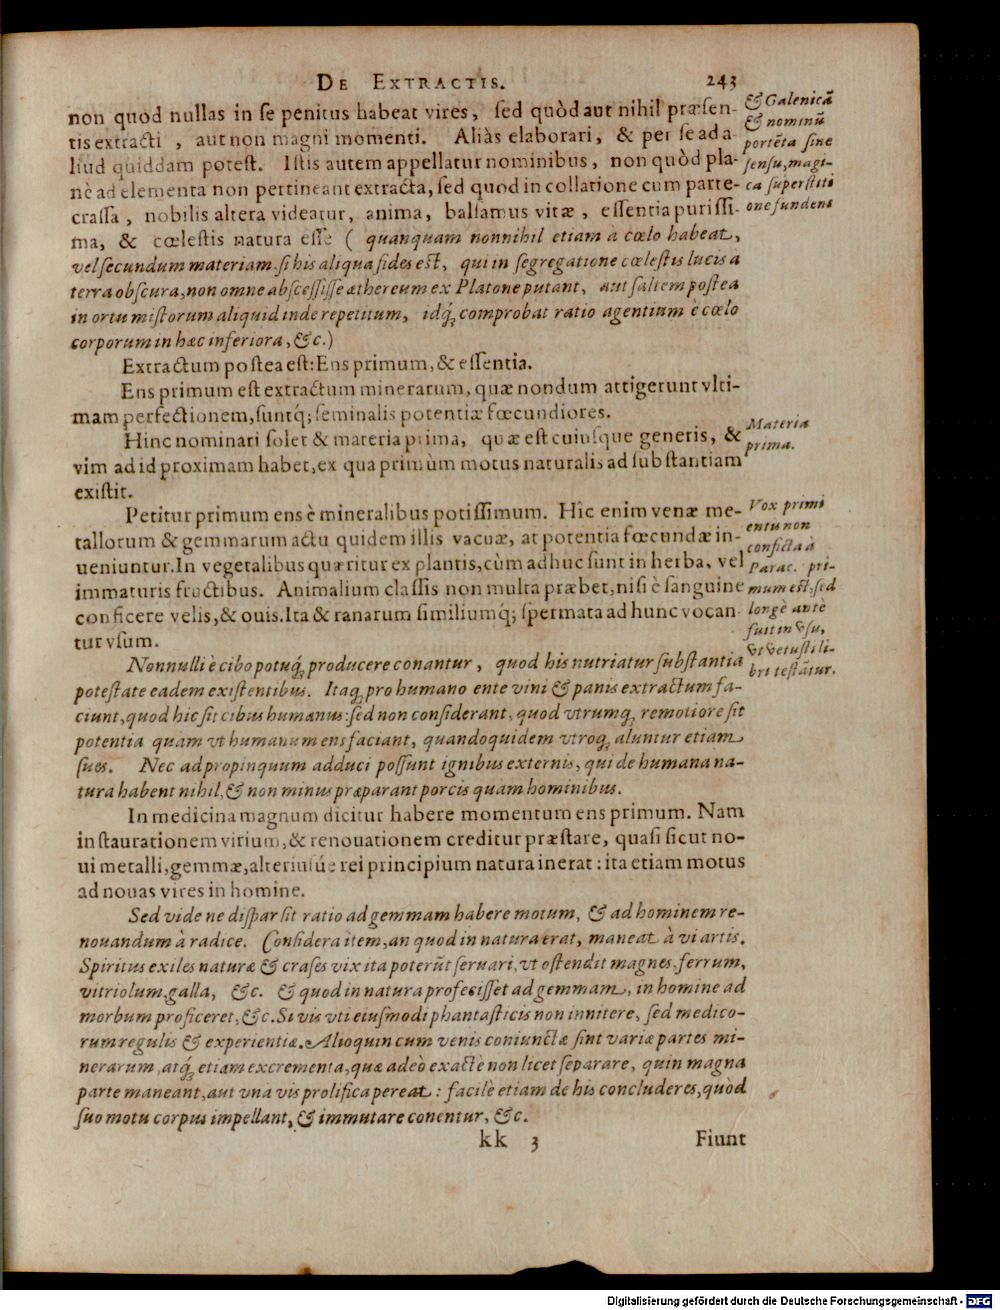 DE EXTRACTIS. 243
non quod nullas in se penitus habeat vires, sed quòd aut nihil præsen-
tis extracti, aut non magni momenti. Aliàs elaborari, & per se ad a-
liud quiddam potest. Istis autem appellatur nominibus, non quòd pla-
nè ad elementa non pertineant extracta, sed quod in collatione cum parte-
crassa, nobilis altera videatur, anima, balsamus vitæ, essentia purissi-
ma, & cœlestis natura esse ( quanquam nonnihil etiam à cœlo habeat,
vel secundum materiam. si his aliqua fides est, qui in segregatione cœlestis lucis a
terra obscura, non omne abscessisse æthereum ex Platone putant, aut saltem postea
in ortu mistorum aliquid inde repetitum, idq́; comprobat ratio agentium è cœlo
corporum in hæc inferiora, &c.)
Extractum postea est: Ens primum, & essentia.
Ens primum est extractum minerarum, quæ nondum attigerunt vlti-
mam perfectionem, suntq́; seminalis potentiæ fœcundiores.
Hinc nominari solet & materia prima, quæ est cuiusque generis, &
vim ad id proximam habet, ex qua primùm motus naturalis ad substantiam
existit.
Petitur primum ens è mineralibus potissimum. Hic enim venæ me-
tallorum & gemmarum actu quidem illis vacuæ, at potentia fœcundæ in-
ueniuntur. In vegetalibus quæritur ex plantis, cùm adhuc sunt in herba, vel
immaturis fructibus. Animalium classis non multa præbet, nisi è sanguine
conficere velis, & ouis. Ita & ranarum similiumq́; spermata ad hunc vocan-
tur vsum.
Nonnulli è cibo potuq́; producere conantur, quod his nutriatur substantia
potestate eadem existentibus. Itaq; pro humano ente vini & panis extractum fa-
ciunt, quod hic sit cibus humanus: sed non considerant, quod vtrumq; remotiore sit
potentia quam vt humanum ens faciant, quandoquidem vtroq; aluntur etiam
sues. Nec ad propinquum adduci possunt ignibus externis, qui de humana na-
tura habent nihil, & non minus præparant porcis quam hominibus.
In medicina magnum dicitur habere momentum ens primum. Nam
instaurationem virium, & renouationem creditur præstare, quasi sicut no-
ui metalli, gemmæ, alteriusúe rei principium natura inerat: ita etiam motus
ad nouas vires in homine.
Sed vide ne dispar sit ratio ad gemmam habere motum, & ad hominem re-
nouandum à radice. Considera item, an quod in natura erat, maneat à vi artis.
Spiritus exiles naturæ & crases vix ita poterūt seruari, vt ostendit magnes, ferrum,
vitriolum, galla, &c. & quod in natura profecisset ad gemmam, in homine ad
morbum proficeret, &c. Si vis vti eiusmodi phantasticis non innitere, sed medico-
rum regulis & experientiæ. Alioquin cum venis coniunctæ sint variæ partes mi-
nerarum, atq́; etiam excrementa, quæ adeò exactè non licet separare, quin magna
parte maneant, aut vna vis prolifica pereat: facilè etiam de his concluderes, quòd
suo motu corpus impellant, & immutare conentur, &c.
kk 3 Fiunt
& Galenicā
& nominū
portēta sine
sensu, magi-
ca superstiti
one fundens
Materia
prima.
Vox primi
entis non
conficta à
Parac. pri-
mum est, sed
longè antè
fuit in vsu,
vt vetusti li-
bri testātur.
Digitalisierung gefördert durch die Deutsche Forschungsgemeinschaft - DFG